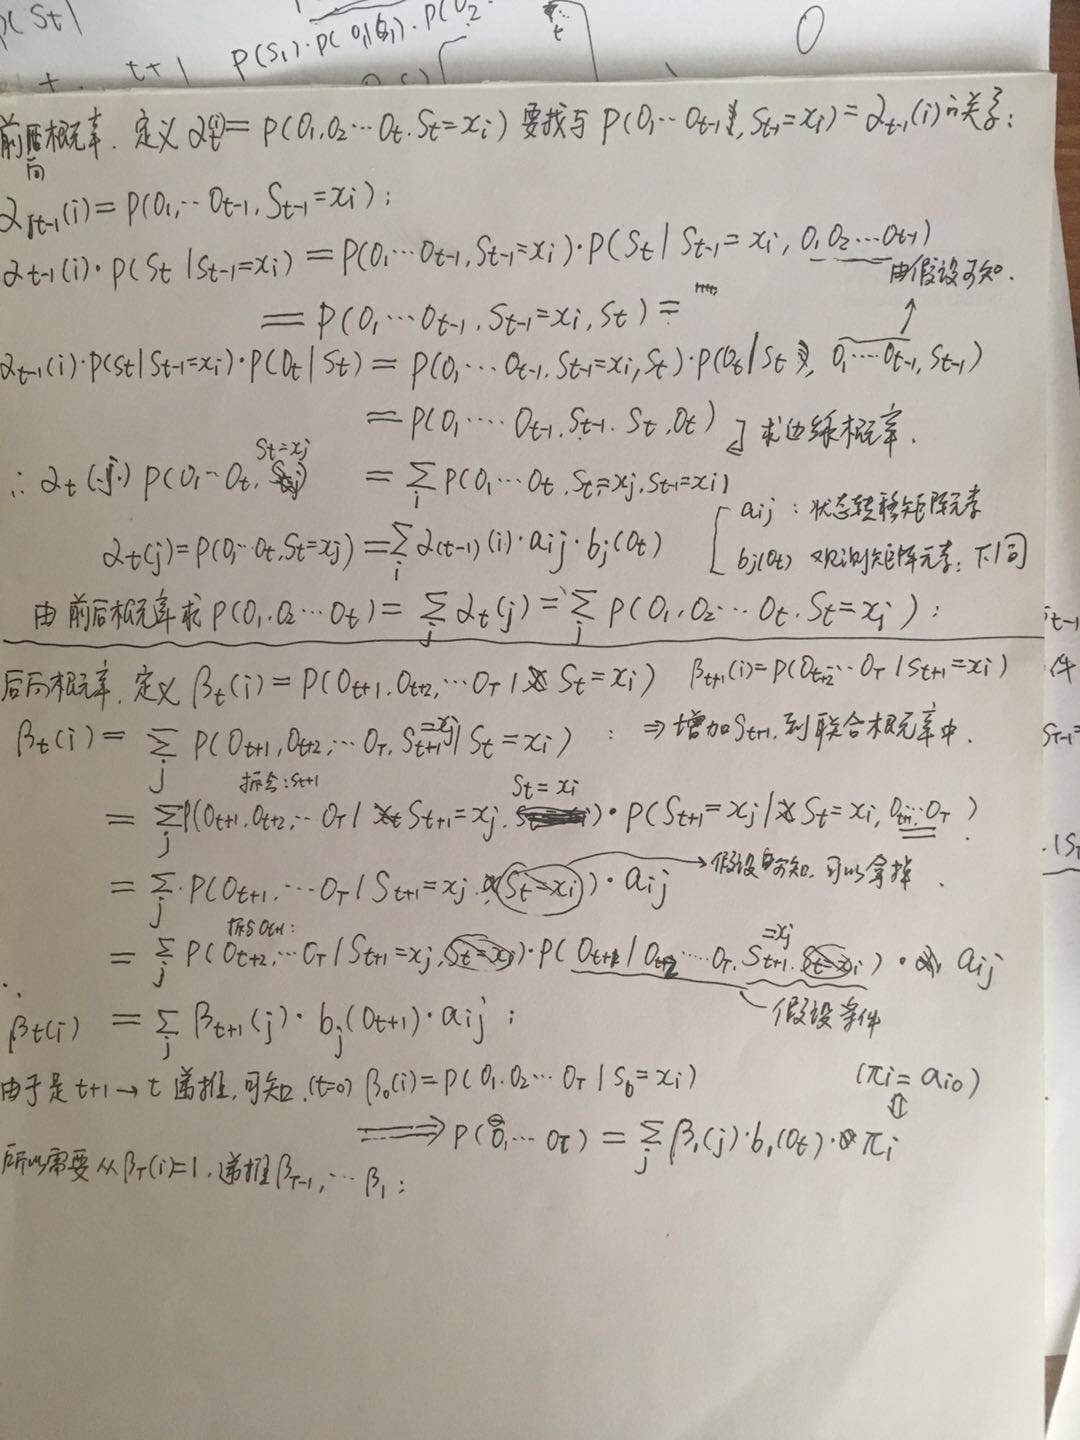 P(St)
t+1 P(S₁)·P(O₁|S₁)·P(O₂
t
前向概率. 定义 αt(i) = P(O₁,O₂…Ot, St=xi) 要找与 P(O₁…Ot-1, St-1=xi) = αt-1(i) 的关系:
αt-1(i) = P(O₁,…Ot-1, St-1=xi);
αt-1(i)·P(St|St-1=xi) = P(O₁…Ot-1, St-1=xi)·P(St|St-1=xi, O₁O₂…Ot-1)
由假设可知.
= P(O₁…Ot-1, St-1=xi, St) =
αt-1(i)·P(St|St-1=xi)·P(Ot|St) = P(O₁…Ot-1, St-1=xi, St)·P(Ot|St, O₁…Ot-1, St-1)
= P(O₁…Ot-1, St-1, St, Ot) 求边缘概率.
∴ αt(j) P(O₁…Ot, St=xj) = Σi P(O₁…Ot, St=xj, St-1=xi)
αt(j) = P(O₁…Ot, St=xj) = Σi α(t-1)(i)·aij·bj(Ot)
aij : 状态转移矩阵元素
bj(Ot) 观测矩阵元素; 下同
由前后概率求 P(O₁,O₂…Ot) = Σj αt(j) = Σj P(O₁,O₂…Ot, St=xj):
后向概率. 定义 βt(i) = P(Ot+1, Ot+2, …OT | St=xi) βt+1(i) = P(Ot+2…OT | St+1=xi)
βt(i) = Σj P(Ot+1, Ot+2, …OT, St+1=xj | St=xi) : ⇒ 增加St+1到联合概率中.
拆分:St+1
= Σj P(Ot+1, Ot+2, …OT | St+1=xj, St=xi)·P(St+1=xj | St=xi, Ot+1…OT)
= Σj P(Ot+1, …OT | St+1=xj, St=xi)·aij → 假设可知, 可以拿掉.
拆分Ot+1:
= Σj P(Ot+2, …OT | St+1=xj, St=xi)·P(Ot+1 | Ot+2…OT, St+1=xj, St=xi)·aij
假设条件
∴ βt(i) = Σj βt+1(j)·bj(Ot+1)·aij;
由于是t+1→t 递推, 可知. (t=0) β₀(i) = P(O₁,O₂…OT | S₀=xi) (πi=ai0)
⟹ P(O₁…OT) = Σj β₁(j)·b₁(Ot)·πi
所以需要从βT(i)=1, 递推βT-1, …β₁;